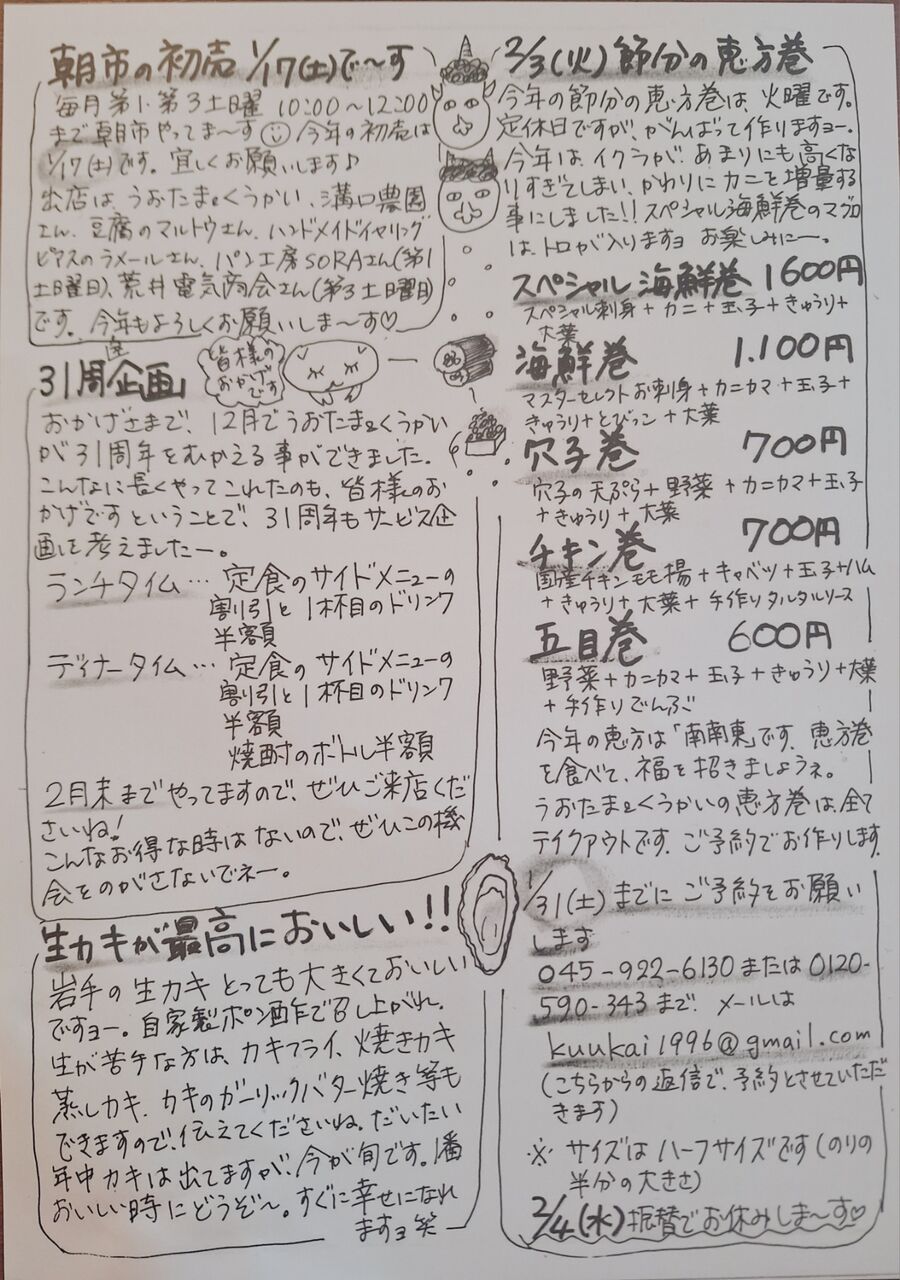 朝市の初売 1/17(土)で〜す
毎月第1・第3土曜 10:00〜12:00
まで朝市やってま〜す 今年の初売は
1/17(土)です。宜しくお願いします♪
出店は、うおたま&くうかい、溝口農園
さん、豆腐のマルトウさん、ハンドメイドイヤリング
ピアスのラメールさん、パン工房SORAさん(第1
土曜日)、荒井電気商会さん(第3土曜日)
です。今年もよろしくお願いしま〜す♡
31周企画
皆様の
おかげ
です
おかげさまで、12月でうおたま&くうかい
が31周年をむかえる事ができました。
こんなに長くやってこれたのも、皆様のお
かげですということで、31周年もサービス企
画を考えましたー。
ランチタイム… 定食のサイドメニューの
割引と1杯目のドリンク
半額
ディナータイム… 定食のサイドメニューの
割引と1杯目のドリンク
半額
焼酎のボトル半額
2月末までやってますので、ぜひご来店くだ
さいね!
こんなお得な時はないので、ぜひこの機
会をのがさないでネー。
生カキが最高においしい!!
岩手の生カキとっても大きくておいしい
ですョー。自家製ポン酢で召し上がれ。
生が苦手な方は、カキフライ、焼きカキ
蒸しカキ、カキのガーリックバター焼き等も
できますので、伝えてくださいね。だいたい
年中カキは出てますが、今が旬です。一番
おいしい時にどうぞ〜。すぐに幸せになれ
ますョ笑
2/3(火)節分の恵方巻
今年の節分の恵方巻は、火曜です。
定休日ですが、がんばって作りますョー。
今年は、イクラが、あまりにも高くな
りすぎてしまい、かわりにカニを増量する
事にしました!!スペシャル海鮮巻のマグロ
は、トロが入りますョ お楽しみにー。
スペシャル海鮮巻 1600円
スペシャル刺身+カニ+玉子+きゅうり+
大葉
海鮮巻 1.100円
マスターセレクトお刺身+カニカマ+玉子+
きゅうり+とびっこ+大葉
穴子巻 700円
穴子の天ぷら+野菜+カニカマ+玉子
+きゅうり+大葉
チキン巻 700円
国産チキンモモ揚+キャベツ+玉子+ハム
+きゅうり+大葉+手作りタルタルソース
五目巻 600円
野菜+カニカマ+玉子+きゅうり+大葉
+手作りでんぶ
今年の恵方は「南南東」です。恵方巻
を食べて、福を招きましょうネ。
うおたま&くうかいの恵方巻は、全て
テイクアウトです。ご予約でお作りします。
1/31(土)までにご予約をお願い
します
045-922-6130または0120-
590-343まで。メールは
kuukai1996@gmail.com
(こちらからの返信で、予約とさせていただ
きます)
※ サイズはハーフサイズです(のりの
半分の大きさ)
2/4(水)振替でお休みしま〜す♡